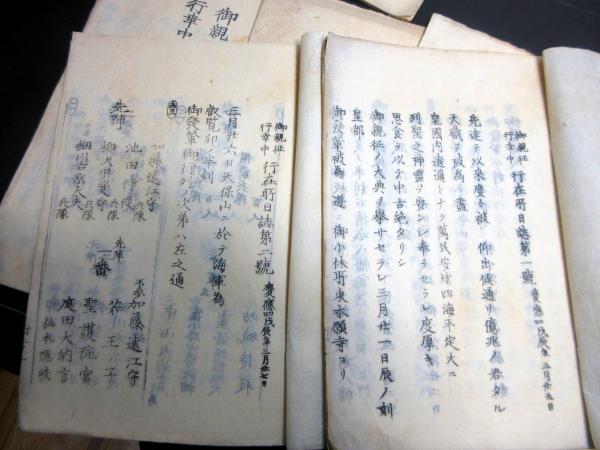 御親征
行幸中 行在所日誌第一號 慶應四戊辰年三月廿五日
先達テ以來度々被 仰出候通リ億兆ノ君タル
天職ヲ被為 盡
皇國內遠邇トナク萬民安堵四海平定大ニ
列聖之神靈ヲ安ンシ奉ラセラレ度厚キ
思食ヲ以テ中古絶タリシ
御親征ノ大典ヲ擧サセラレ三月廿一日辰ノ刻
皇都
御發輦被為 遊 御小休所東本願寺ヨリ
御親征
行幸中 行在所日誌第二號 慶應四戊辰年三月廿七日
三月廿六日天保山ニ於テ海軍為
叡覽卯半刻
御發輦御行列次第ハ左之通
先陣
加藤遠江守 兵隊
池田 兵隊
柳沢甲斐守 兵隊
細川右京大夫 兵隊
先陣
一番
加藤遠江守
若王子
聖護院宮
廣田大納言
御親
行幸中